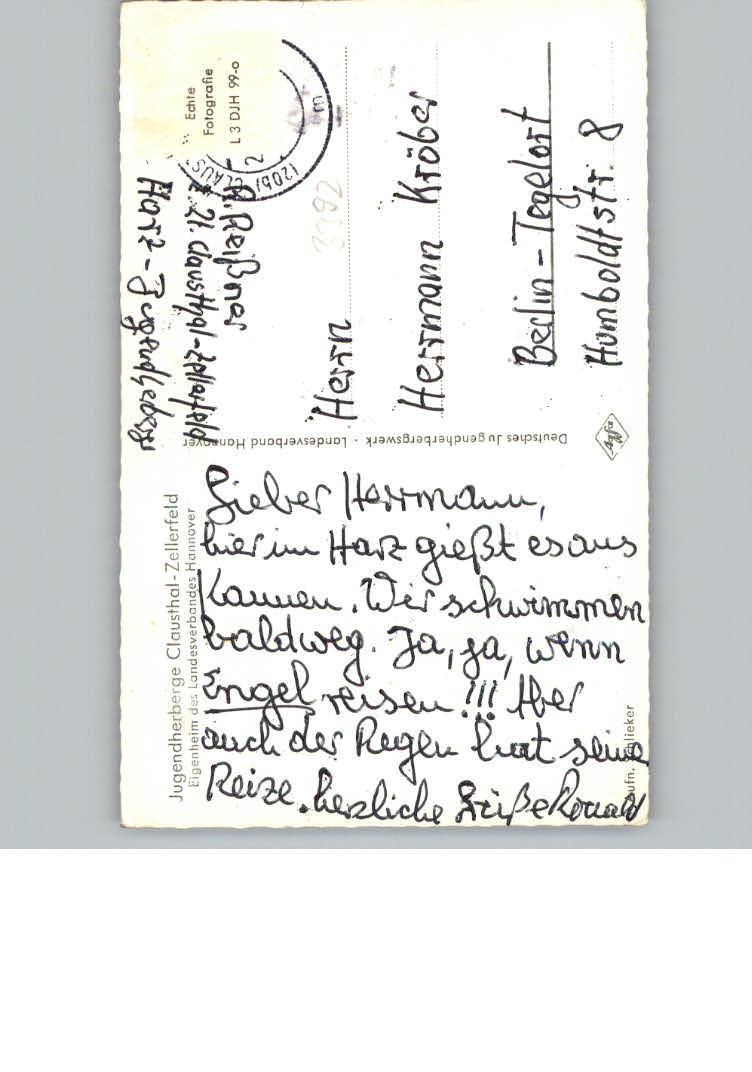 Jugendherberge Clausthal-Zellerfeld
Eigenheim des Landesverbandes Hannover
Lieber Herrmann,
hier im Harz gießt es aus
Kannen. Wir schwimmen
bald weg. Ja, ja, wenn
Engel reisen!!! Aber
auch der Regen hat seine
Reize. herzliche Grüße Ronald
Aufn. Schlieker
Deutsches Jugendherbergswerk · Landesverband Hannover
Agfa
R. Meißner
z. Zt. Clausthal-Zellerfeld
Harz-Jugendheberge
Echte
Fotografie
L 3 DJH 99-o
(20b) CLAUS
2
m
3392
Herrn
Herrmann Kröber
Berlin-Tegelort
Humboldtstr. 8